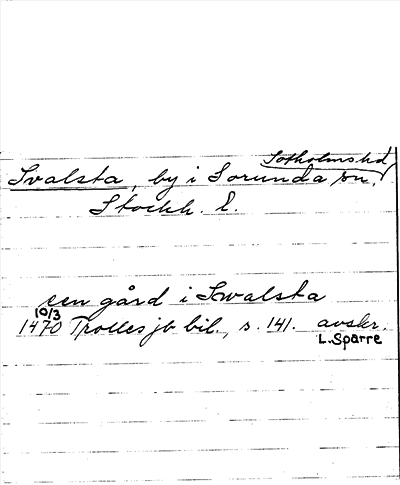 Sotholms hd
Svalsta, by i Sorunda sn,
Stockh. l.
een gård i Swalsta
10/3
1470 Trolles jb bil., s. 141. avskr.
L. Sparre